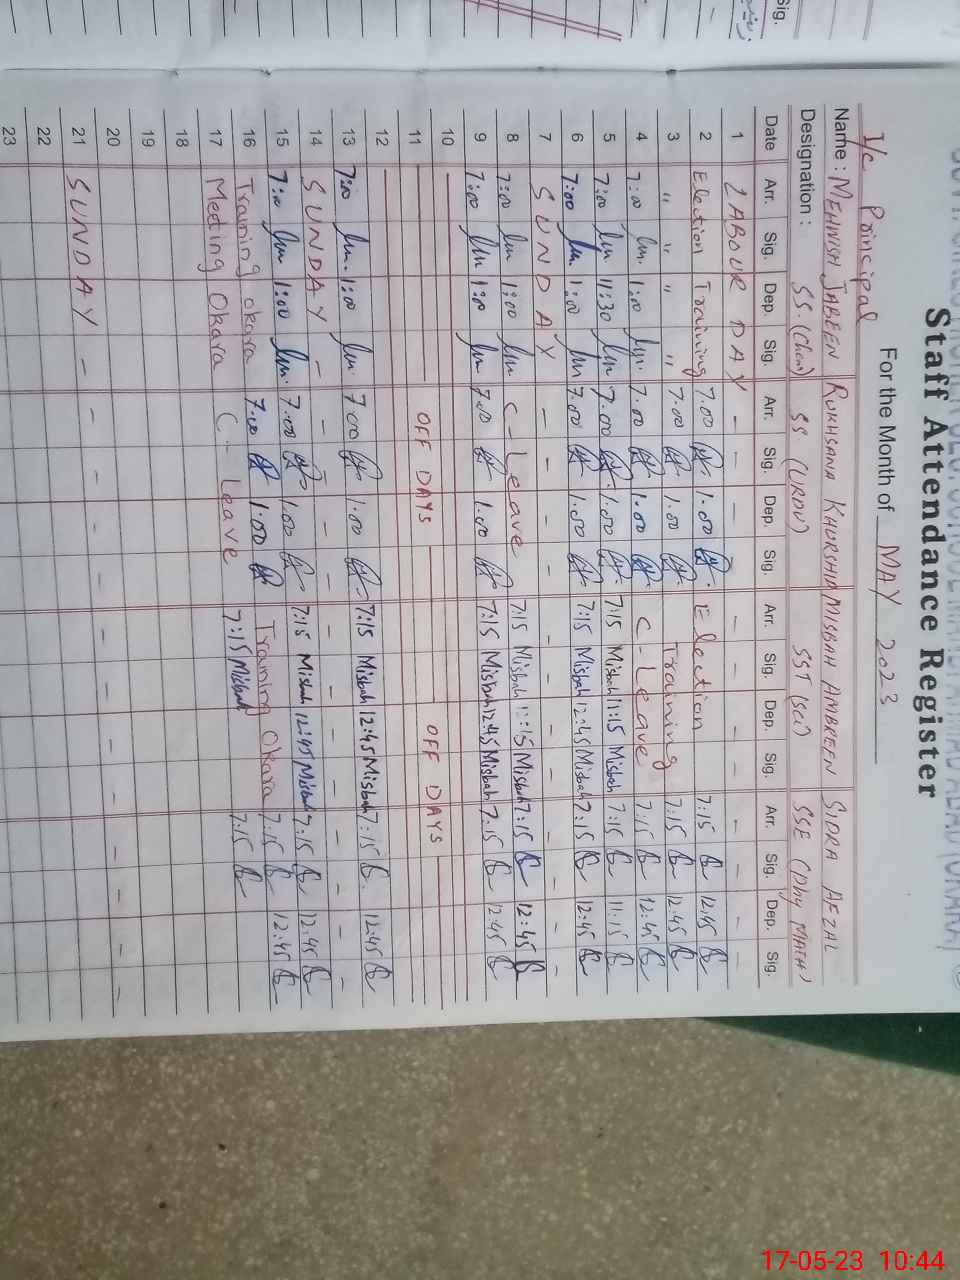 Staff Attendance Register
For the Month of MAY 2023
I/c Principal
Name : MEHWISH JABEEN RUKHSANA KHURSHID MISBAH AMBREEN SIDRA AFZAL
Designation : SS (Chem) SS (URDU) SST (Sci) SSE (Phy MATH)
Date Arr. Sig. Dep. Sig. Arr. Sig. Dep. Sig. Arr. Sig. Dep. Sig. Arr. Sig. Dep. Sig.
1 LABOUR DAY - - - - - - - - - -
2 Election Training 7.00 1.00 Election 7:15 12:45
3 " " " " 7.00 1.00 Training 7:15 12:45
4 7:00 1:00 7.00 1.00 C-Leave 7:15 12:45
5 7:00 11:30 7.00 1.00 7:15 Misbah 11:15 Misbah 7:15 11:15
6 7:00 1:00 7.00 1.00 7:15 Misbah 12:45 Misbah 7:15 12:45
7 SUNDAY - - - - - - - -
8 7:00 1:00 C-Leave 7:15 Misbah 12:15 Misbah 7:15 12:45
9 7:00 1:00 7.00 1.00 7:15 Misbah 12:45 Misbah 7:15 12:45
10
11 OFF DAYS OFF DAYS
12
13 7:00 1:00 7.00 1.00 7:15 Misbah 12:45 Misbah 7:15 12:45
14 SUNDAY - - - - - - - -
15 7:00 1:00 7.00 1.00 7:15 Misbah 12:45 Misbah 7:15 12:45
16 Training Okara 7.00 1.00 Training Okara 7:15 12:45
17 Meeting Okara C- Leave 7:15 Misbah 7:15
18
19
20
21 SUNDAY - - - - - - - - - -
22
23
Sig.
17-05-23 10:44